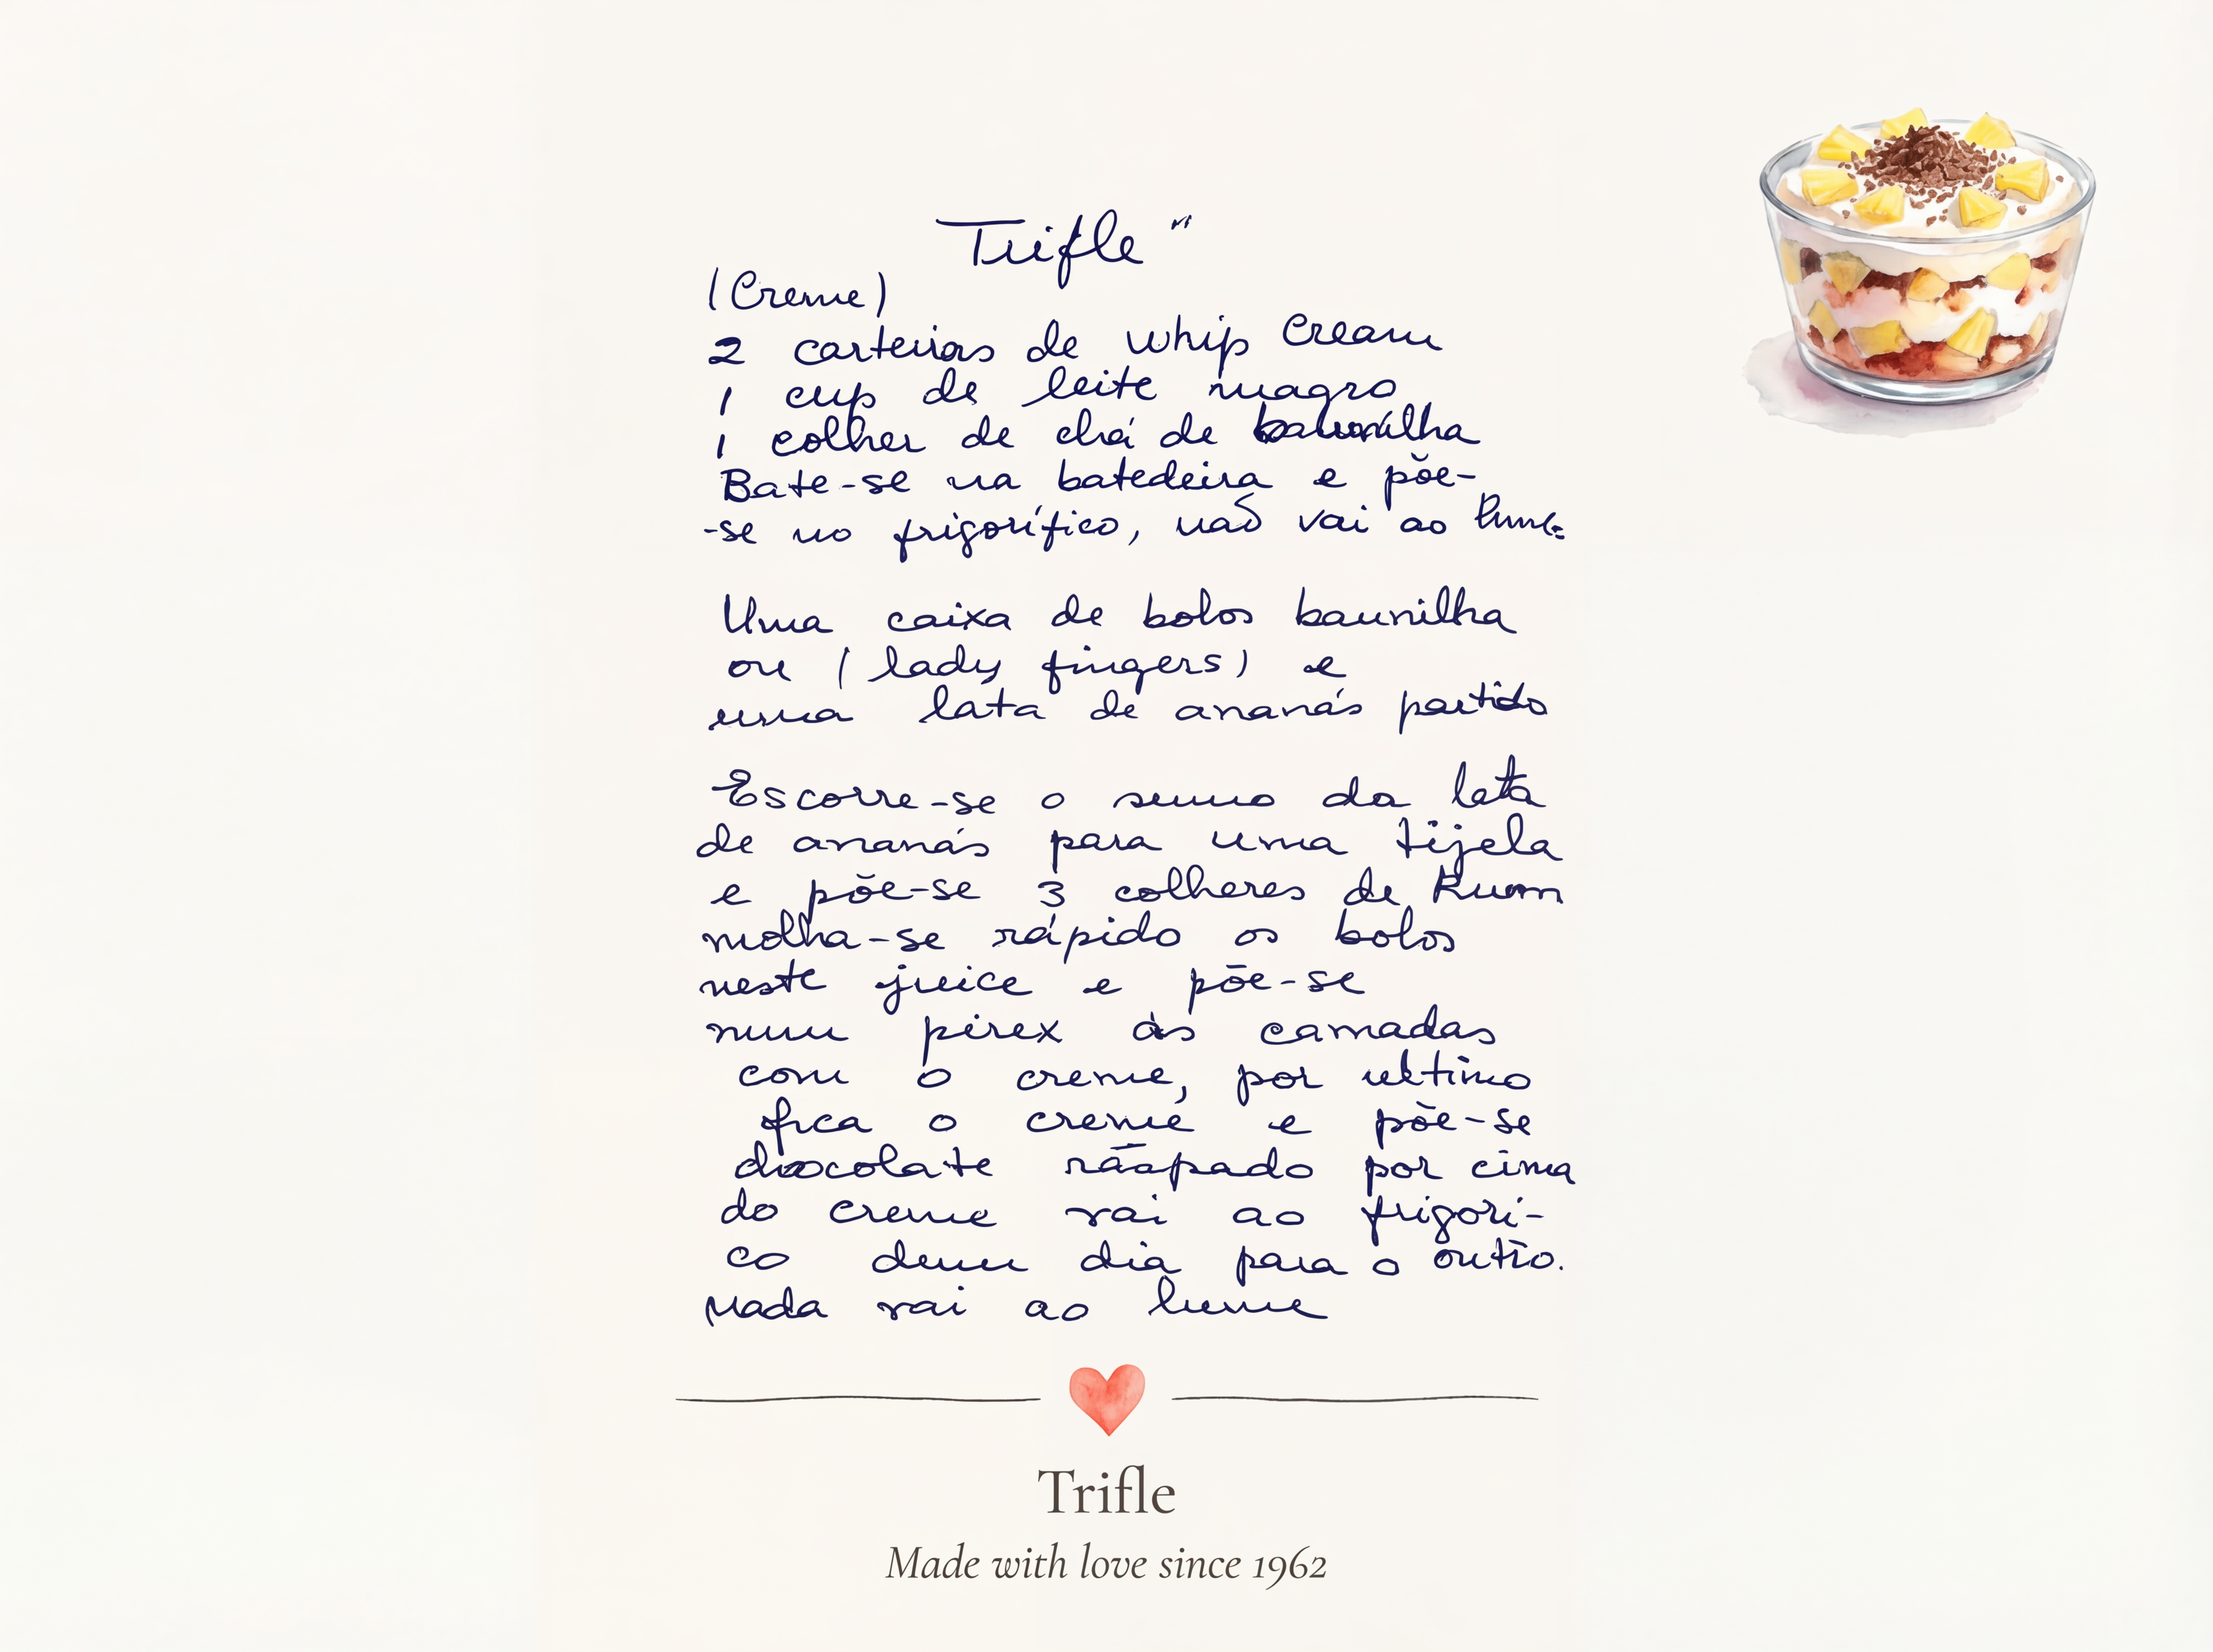 Trifle "
(Creme)
2 carteiras de whip cream
1 cup de leite magro
1 colher de chá de baunilha
Bate-se na batedeira e põe-
-se no frigorífico, não vai ao lume
Uma caixa de bolos baunilha
ou (lady fingers) e
uma lata de ananás partido
Escorre-se o sumo da lata
de ananás para uma tijela
e põe-se 3 colheres de Rum
molha-se rápido os bolos
neste juice e põe-se
num pirex às camadas
com o creme, por ultimo
fica o creme e põe-se
chocolate rãapado por cima
do creme vai ao frigori-
co dum dia para o outro.
Nada vai ao lume
Trifle
Made with love since 1962